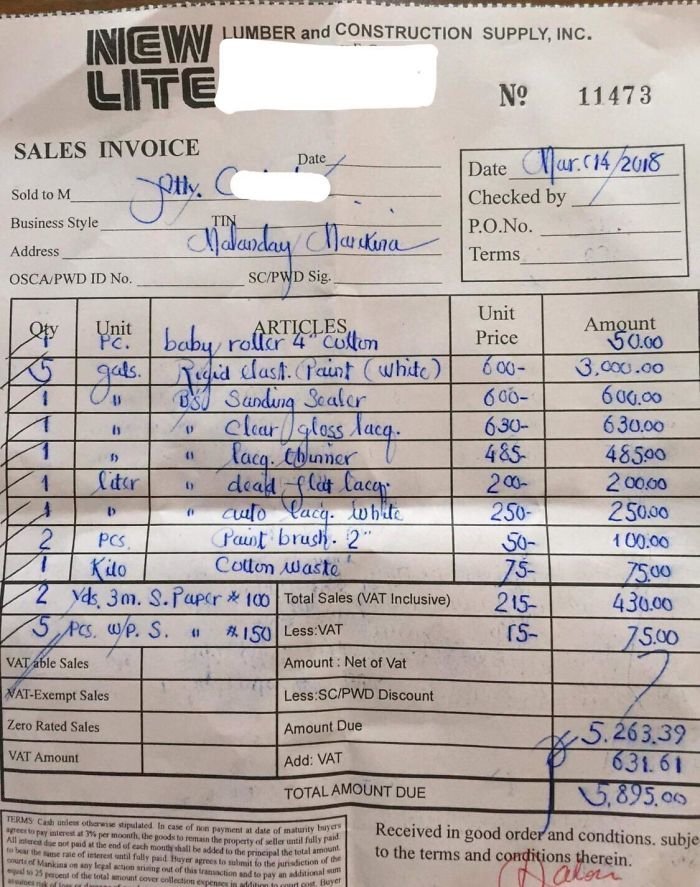 NEW LITE
LUMBER and CONSTRUCTION SUPPLY, INC.
Nº 11473
SALES INVOICE
Date
Sold to M
Business Style TIN
Address Malanday Marikina
OSCA/PWD ID No. SC/PWD Sig.
Date Mar. 14/2018
Checked by
P.O.No.
Terms
Qty Unit ARTICLES Unit Price Amount
1 Pc. baby roller 4" cotton 50.00
5 gals. Rigid elast. Paint (white) 600- 3,000.00
1 " BSJ Sanding Sealer 600- 600.00
1 " " Clear gloss lacq. 630- 630.00
1 " " lacq. thinner 485- 485.00
1 liter " dead flat lacq. 200- 200.00
1 " " auto lacq. white 250- 250.00
2 pcs. Paint brush. 2" 50- 100.00
1 Kilo Cotton waste 75- 75.00
2 yds. 3m. S. Paper # 100 Total Sales (VAT Inclusive) 215- 430.00
5 pcs. w/p. S. " #150 Less:VAT 15- 75.00
VATable Sales Amount : Net of Vat
VAT-Exempt Sales Less:SC/PWD Discount
Zero Rated Sales Amount Due 5,263.39
VAT Amount Add: VAT 631.61
TOTAL AMOUNT DUE 5,895.00
TERMS: Cash unless otherwise stipulated. In case of non payment at date of maturity buyers
agrees to pay interest at 3% per moonth. the goods to remain the property of seller until fully paid.
All interest due not paid at the end of each month shall be added to the principal the total amount.
to bear the same rate of interest until fully paid. Buyer agrees to submit to the jurisdiction of the
courts of Marikina on any legal action arising out of this transaction and to pay an additional sum
equal to 25 percent of the total amount cover collection expenses in addition to court cost. Buyer
Received in good order and condtions. subje
to the terms and conditions therein.